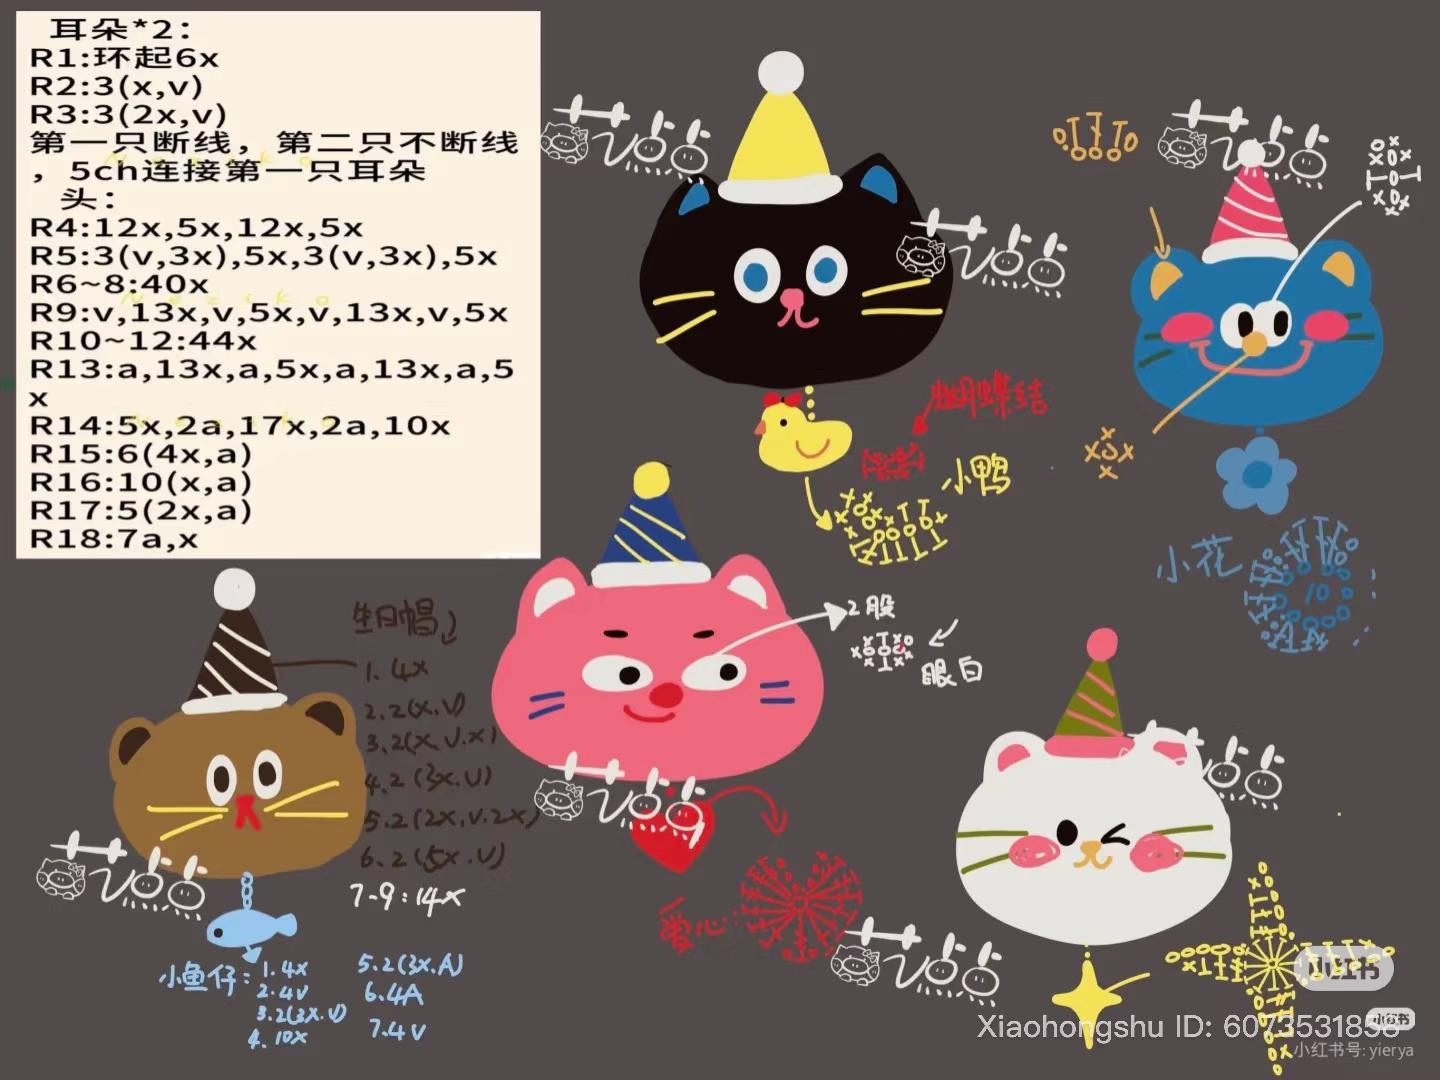 耳朵*2:
R1:环起6x
R2:3(x,v)
R3:3(2x,v)
第一只断线，第二只不断线
，5ch连接第一只耳朵
头:
R4:12x,5x,12x,5x
R5:3(v,3x),5x,3(v,3x),5x
R6~8:40x
R9:v,13x,v,5x,v,13x,v,5x
R10~12:44x
R13:a,13x,a,5x,a,13x,a,5
x
R14:5x,2a,17x,2a,10x
R15:6(4x,a)
R16:10(x,a)
R17:5(2x,a)
R18:7a,x
蝴蝶结
小鸭
小花
10
2股
眼白
生日帽
1. 4x
2.2(x.v)
3.2(x.v.x)
4.2(3x.v)
5.2(2x.v.2x)
6.2(5x.v)
7-9:14x
爱心:
小鱼仔:
1.4x
2.4v
3.2(3x.v)
4.10x
5.2(3x.A)
6.4A
7.4v
小红书
Xiaohongshu ID: 6073531898
小红书
小红书号: yierya